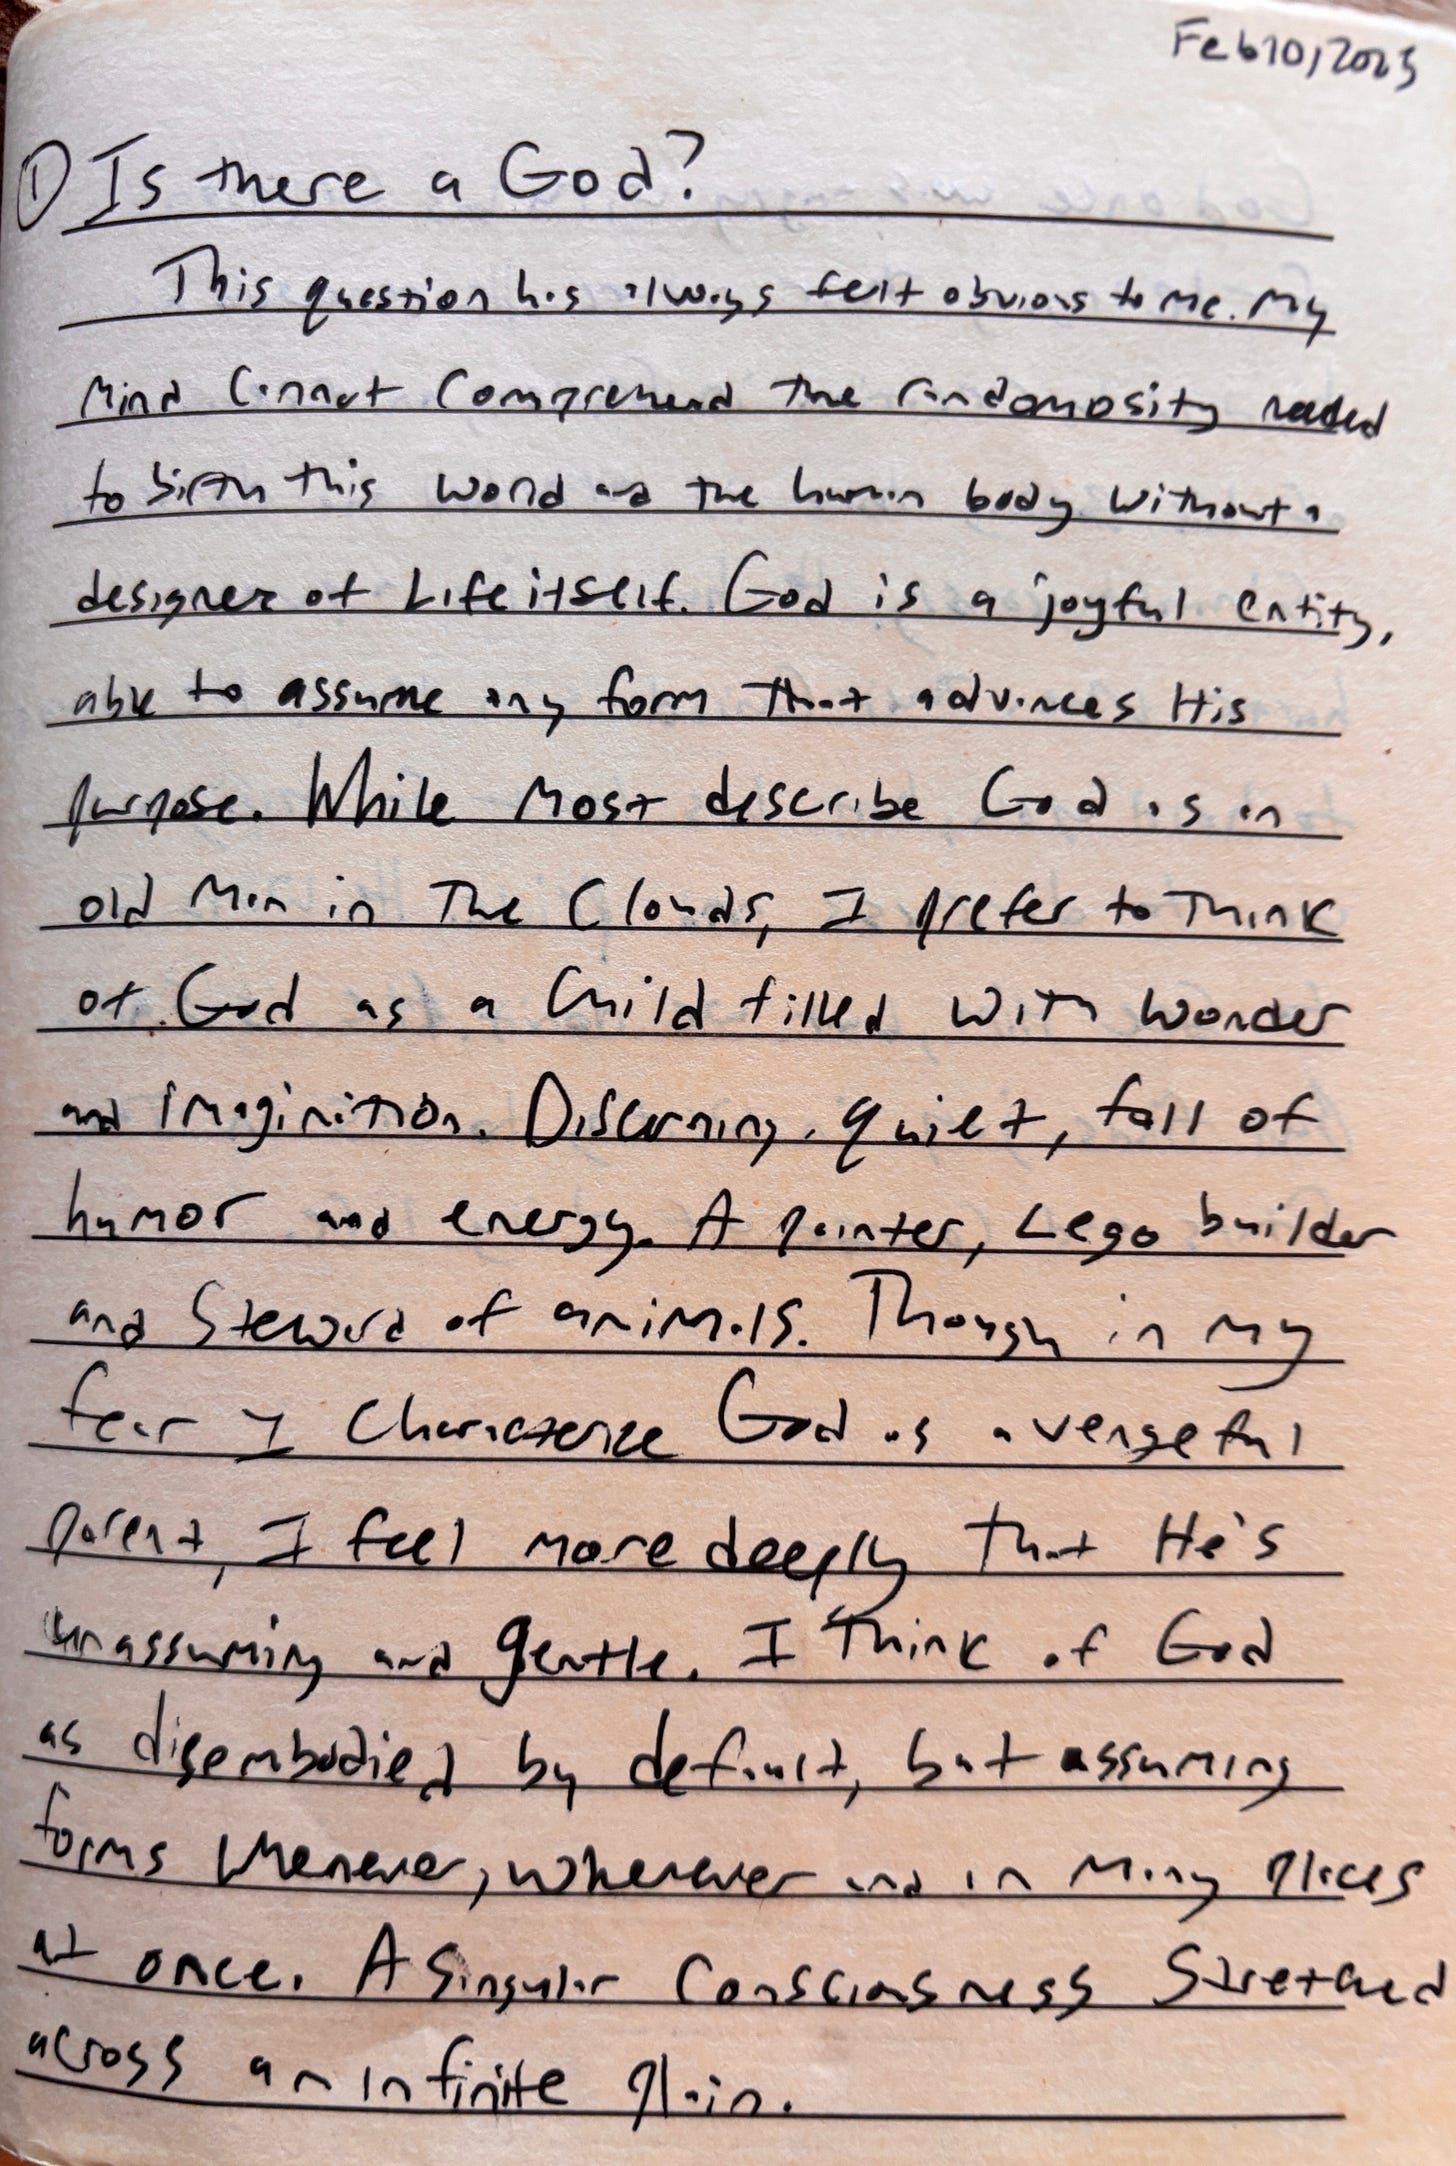 Feb 10, 2025
① Is there a God?
This question has always felt obvious to me. My
mind cannot comprehend the randomosity needed
to birth this world and the human body without a
designer of Life itself. God is a joyful entity,
able to assume any form that advances His
purpose. While most describe God as an
old man in the clouds, I prefer to think
of God as a child filled with wonder
and imagination. Discerning, quiet, full of
humor and energy. A painter, Lego builder
and Steward of animals. Though in my
fear I characterize God as a vengeful
parent, I feel more deeply that He's
unassuming and gentle. I think of God
as disembodied by default, but assuming
forms whenever, wherever and in many places
at once. A singular consciousness stretched
across an infinite plain.